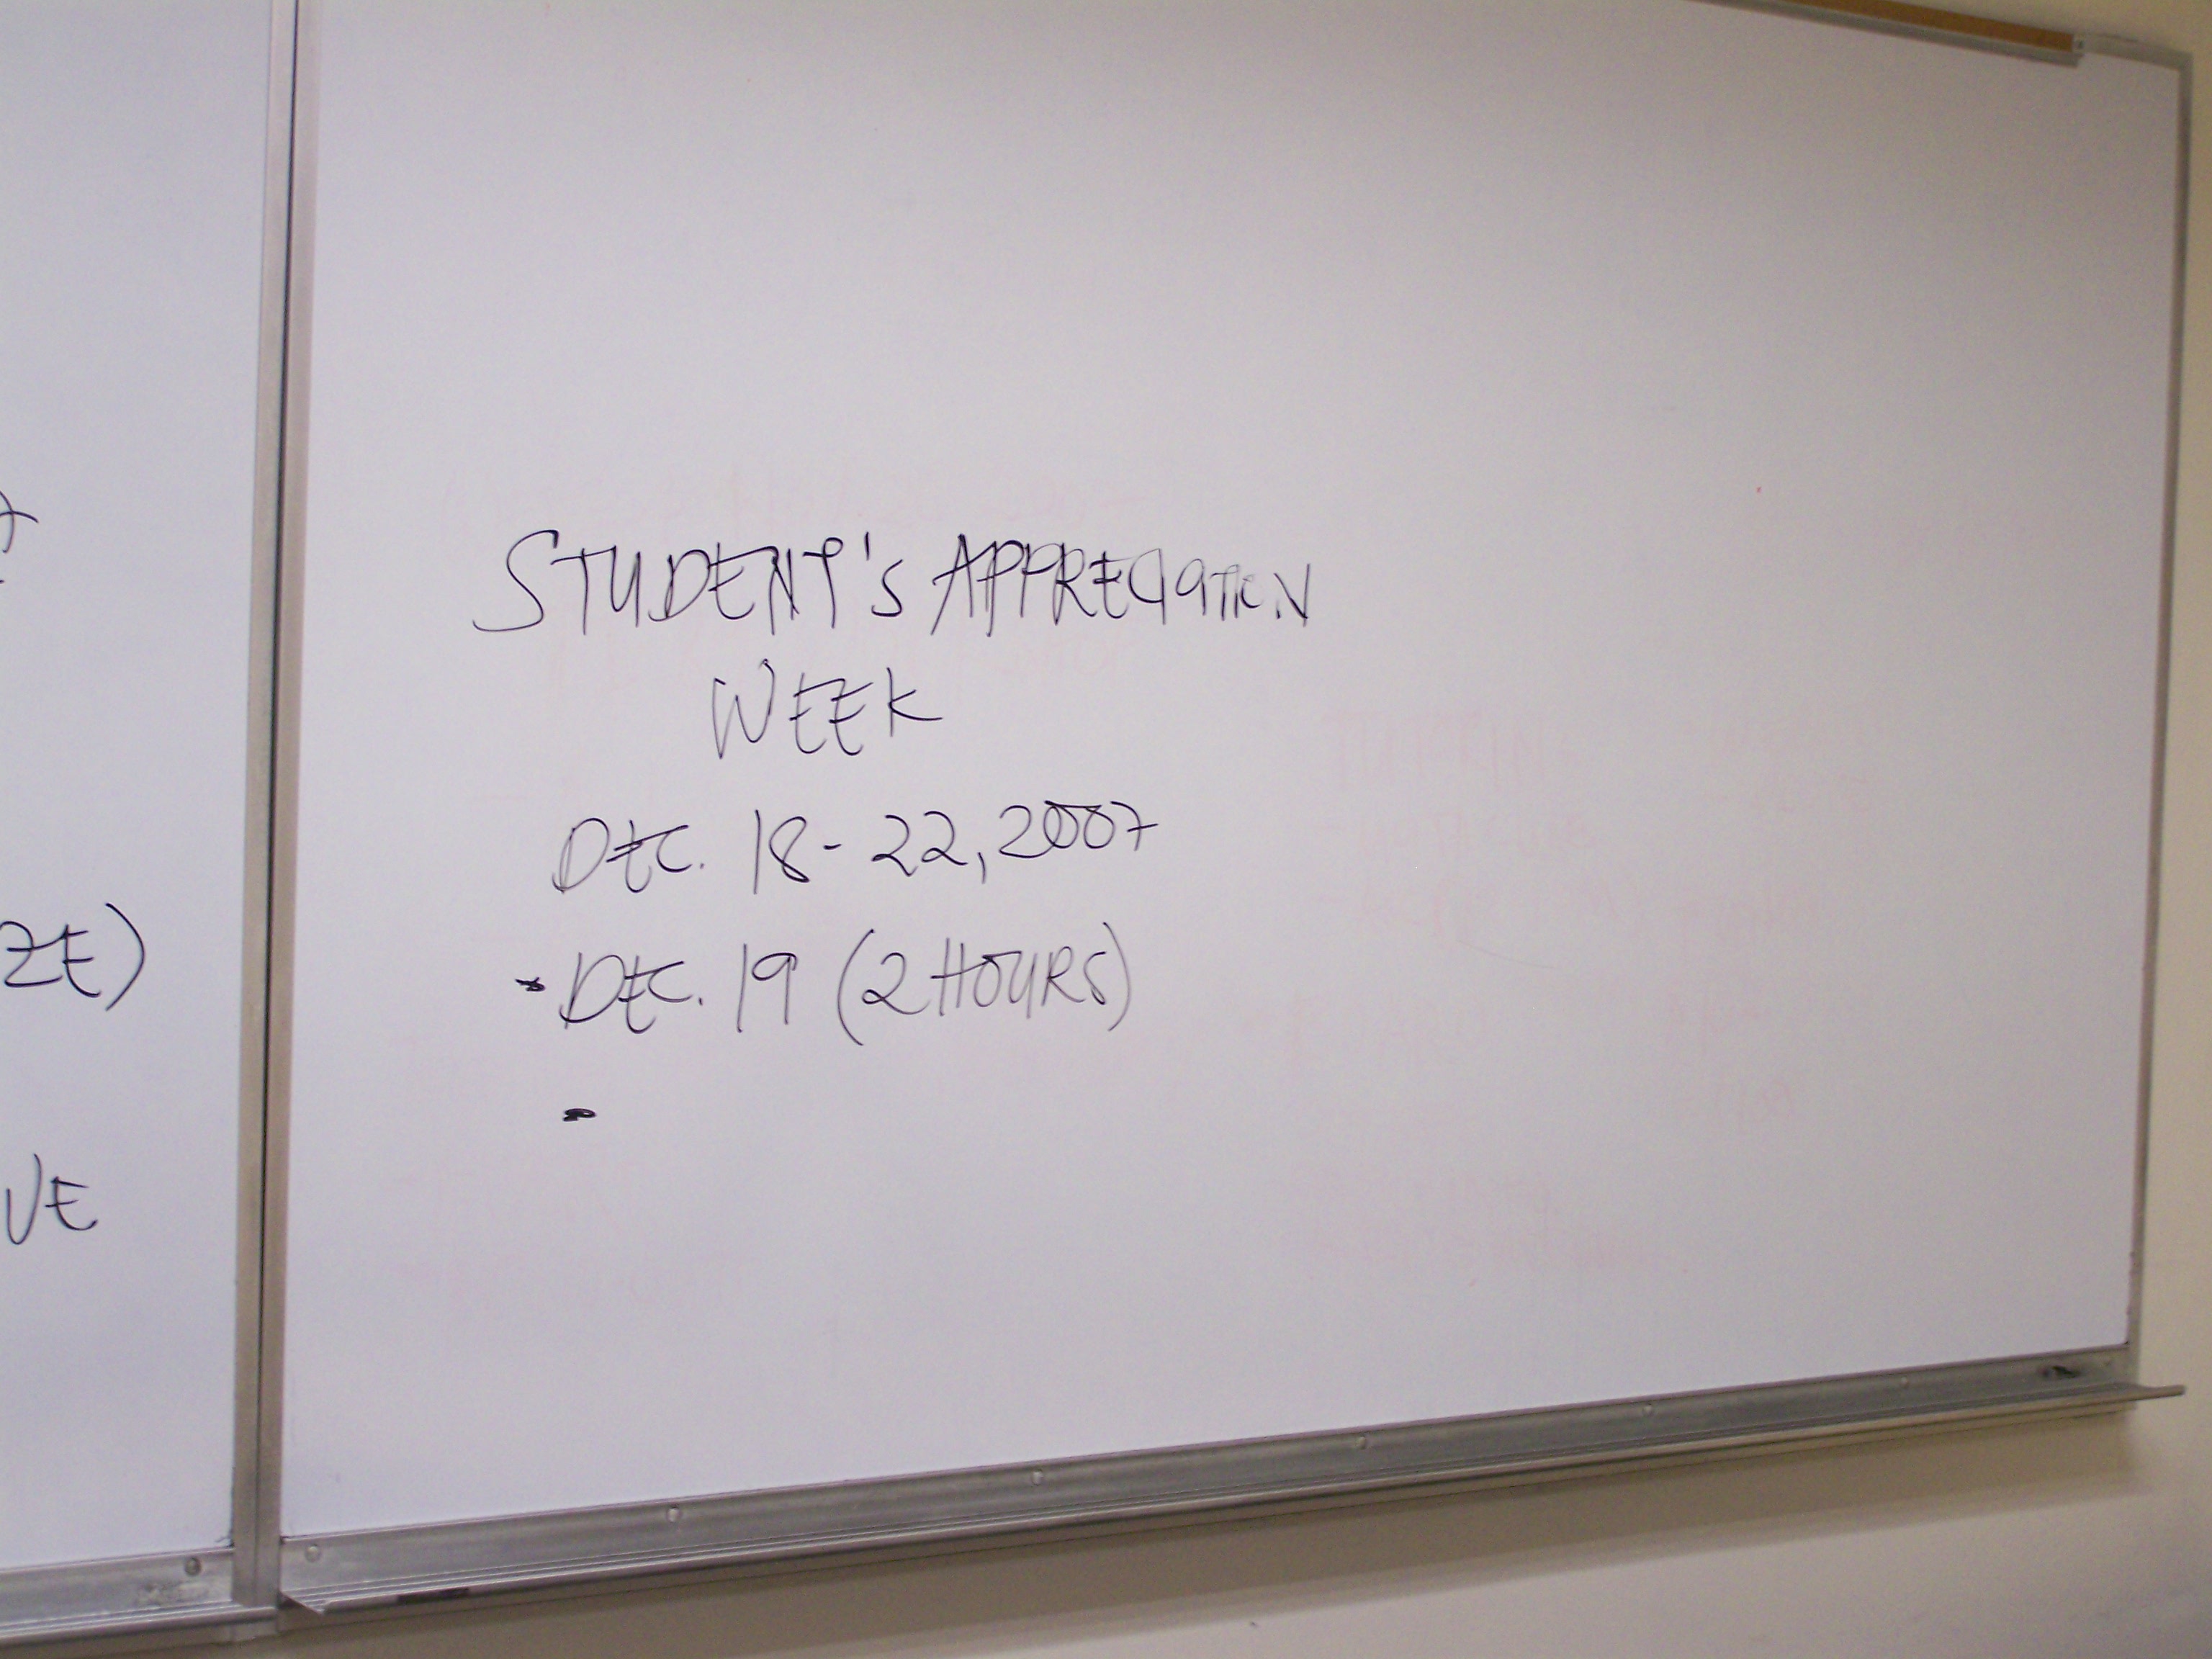 STUDENT'S APPRECIATION
WEEK
DEC. 18-22, 2007
- DEC. 19 (2 HOURS)
-
ZE)
VE